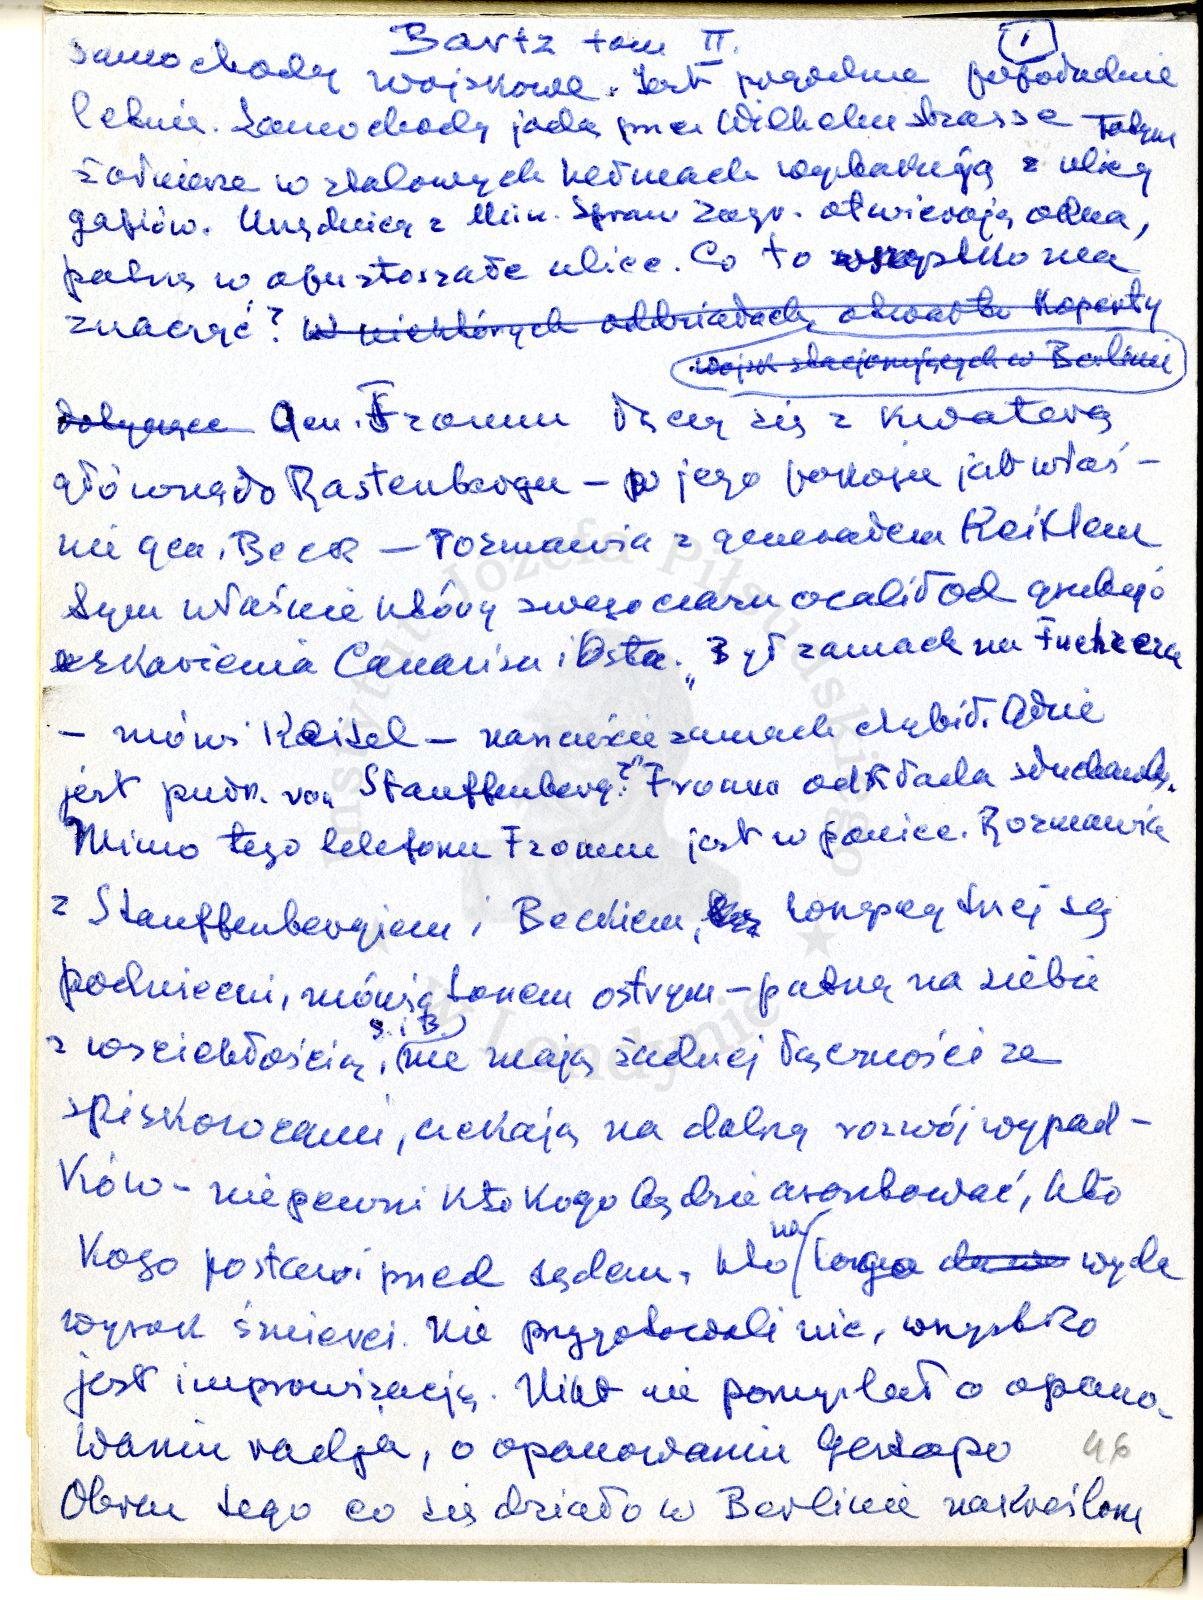 Bartz tom II. 1
samochody wojskowe. Jest pogodne popołudnie
letnie. Samochody jadą przez Wilhelmstrasse
żołnierze w stalowych hełmach wypatrują z ulicy
gapiów. Urzędnicy z Min. Spraw Zagr. otwierają okna,
patrzą w opustoszałe ulice. Co to wszystko ma
znaczyć? W niektórych oddziałach otwarto koperty
wojsk stacjonujących w Berlinie
dotyczące Gen. Fromm łączy się z kwaterą
główną do Rastenburgu – w jego pokoju jest właś-
nie gen. Beck – rozmawia z generałem Keitlem
tym właśnie który swego czasu ocalił od grubego
oskarżenia Canarisa i Osta. „Był zamach na Fuehrera
– mówi Keitel – na szczęście zamach chybił. Gdzie
jest pułk. von Stauffenberg?" Fromm odkłada słuchawkę.
Mimo tego telefonu Fromm jest w panice. Rozmawia
z Stauffenbergiem i Beckiem,
podnieceni, mówią tonem ostrym – patrzą na siebie
z wściekłością, (S. i B.) nie mają żadnej łączności ze
spiskowcami, czekają na dalszy rozwój wypad-
ków – niepewni kto kogo będzie aresztować, kto
kogo postawi przed sądem, kto na kogo wyda
wyrok śmierci. Nie przygotowali nic, wszystko
jest improwizacją. Nikt nie pomyślał o opano-
waniu radja, o opanowaniu Gestapo 46
Obraz tego co się działo w Berlinie nakreślony
Instytut Józefa Piłsudskiego
w Londynie